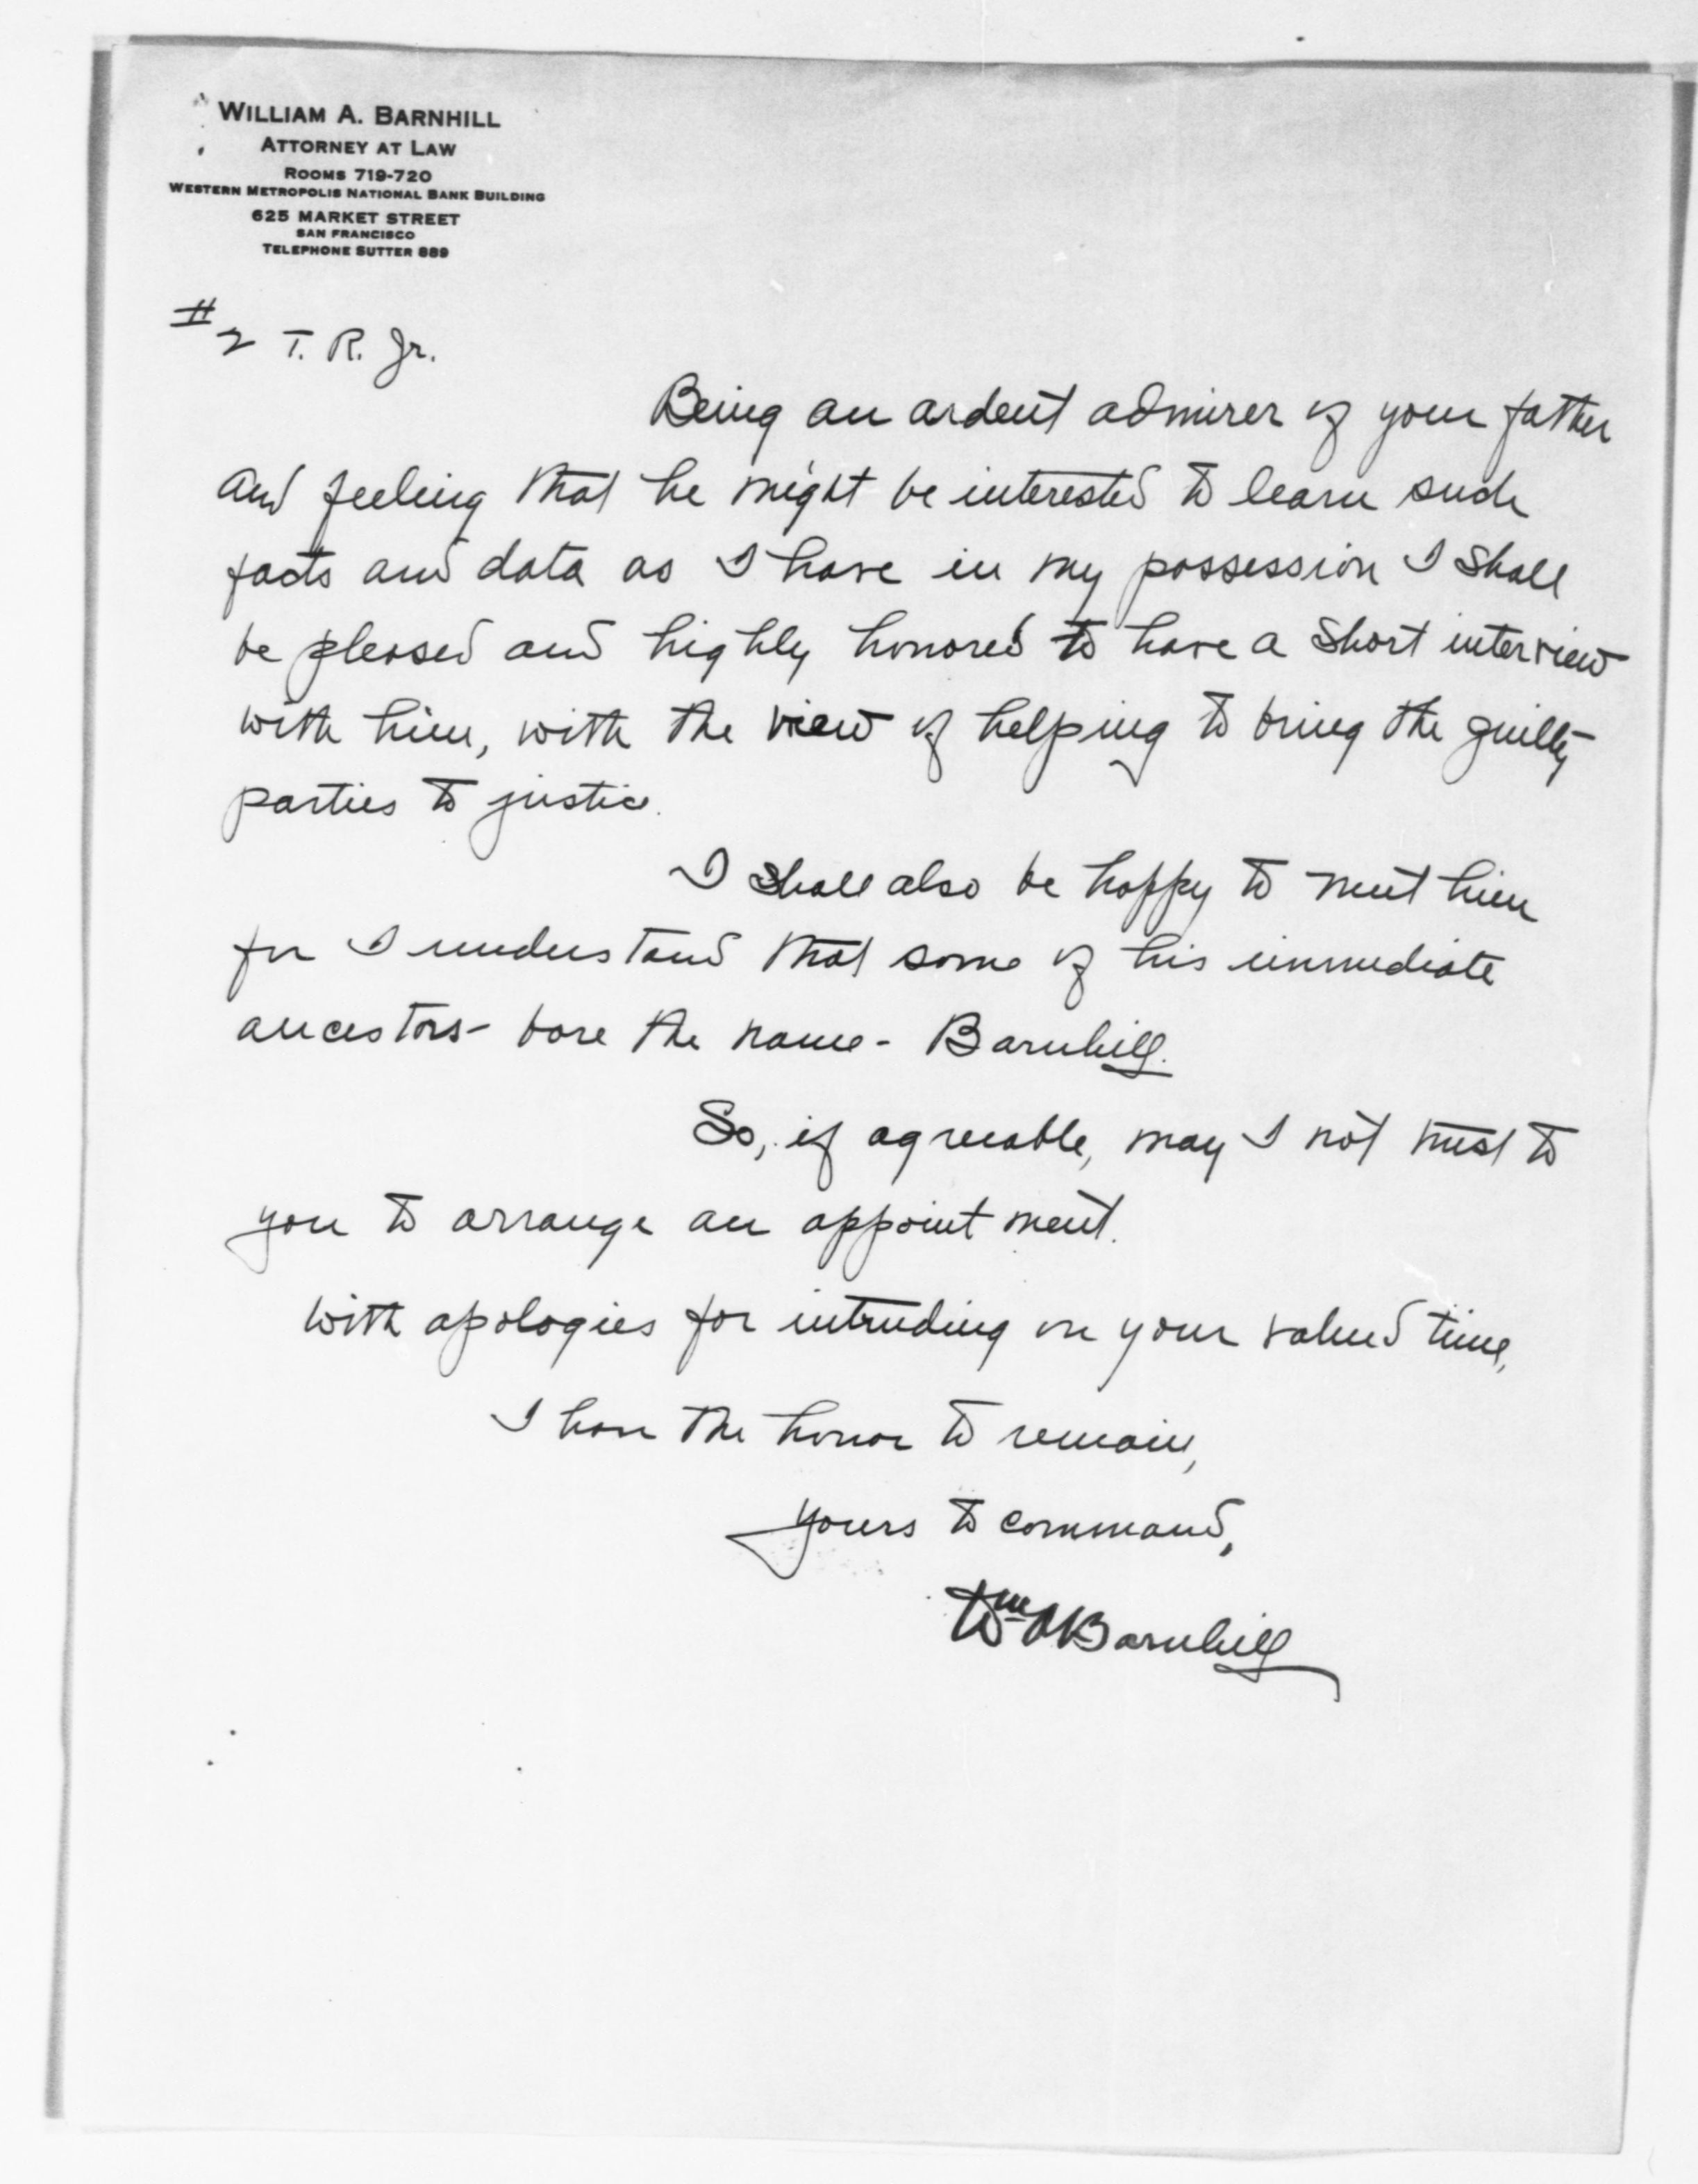 WILLIAM A. BARNHILL
ATTORNEY AT LAW
ROOMS 719-720
WESTERN METROPOLIS NATIONAL BANK BUILDING
625 MARKET STREET
SAN FRANCISCO
TELEPHONE SUTTER 889
#2 T. R. Jr.
Being an ardent admirer of your father
and feeling that he might be interested to learn such
facts and data as I have in my possession I shall
be pleased and highly honored to have a short interview
with him, with the view of helping to bring the guilty
parties to justice.
I shall also be happy to meet him
for I understand that some of his immediate
ancestors - bore the name - Barnhill.
So, if agreeable, may I not trust to
you to arrange an appointment.
With apologies for intruding on your valued time,
I have the honor to remain,
yours to command,
Wm A Barnhill